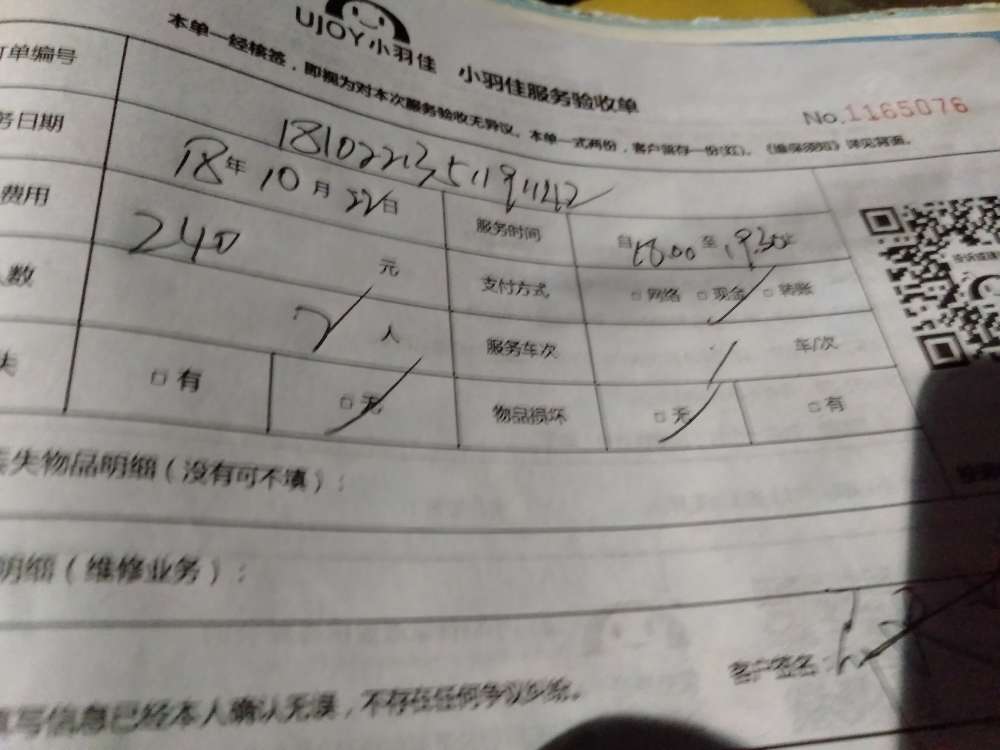 UJOY小羽佳 小羽佳服务验收单
本单一经核签，即视为对本次服务验收无异议。本单一式两份，客户留存一份(红)。《维保须知》详见背面。
No.1165076
订单编号
务日期 18年10月22日 服务时间 自18:00至19:30
费用 240元 支付方式 □网络 □现金 □转账
人数 2人 服务车次 1 车/次
失 □有 □无 物品损坏 □无 □有
丢失物品明细（没有可不填）：
明细（维修业务）：
客户签名：
填写信息已经本人确认无误，不存在任何争议纠纷。